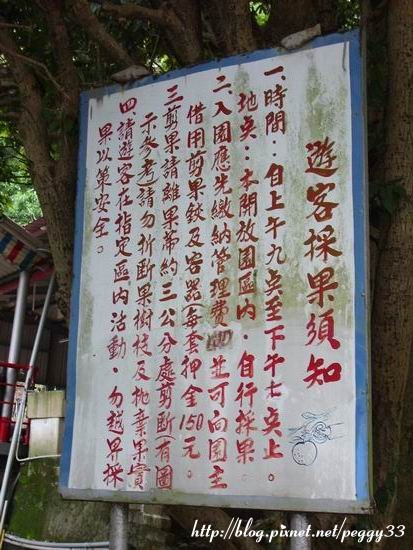 遊客採果須知
一、時間：自上午九点至下午七点止。
地点：本開放園區內，自行採果
二、入園應先繳納管理費 並可向園主
借用剪果鋏及容器每套押金150元。
三、剪果請離果蒂約三公分處剪斷有圖
示參考請勿折斷果樹枝及拋棄果實
四、請遊客在指定區內活動，勿越界採
果以策安全。
http://blog.pixnet.net/peggy33